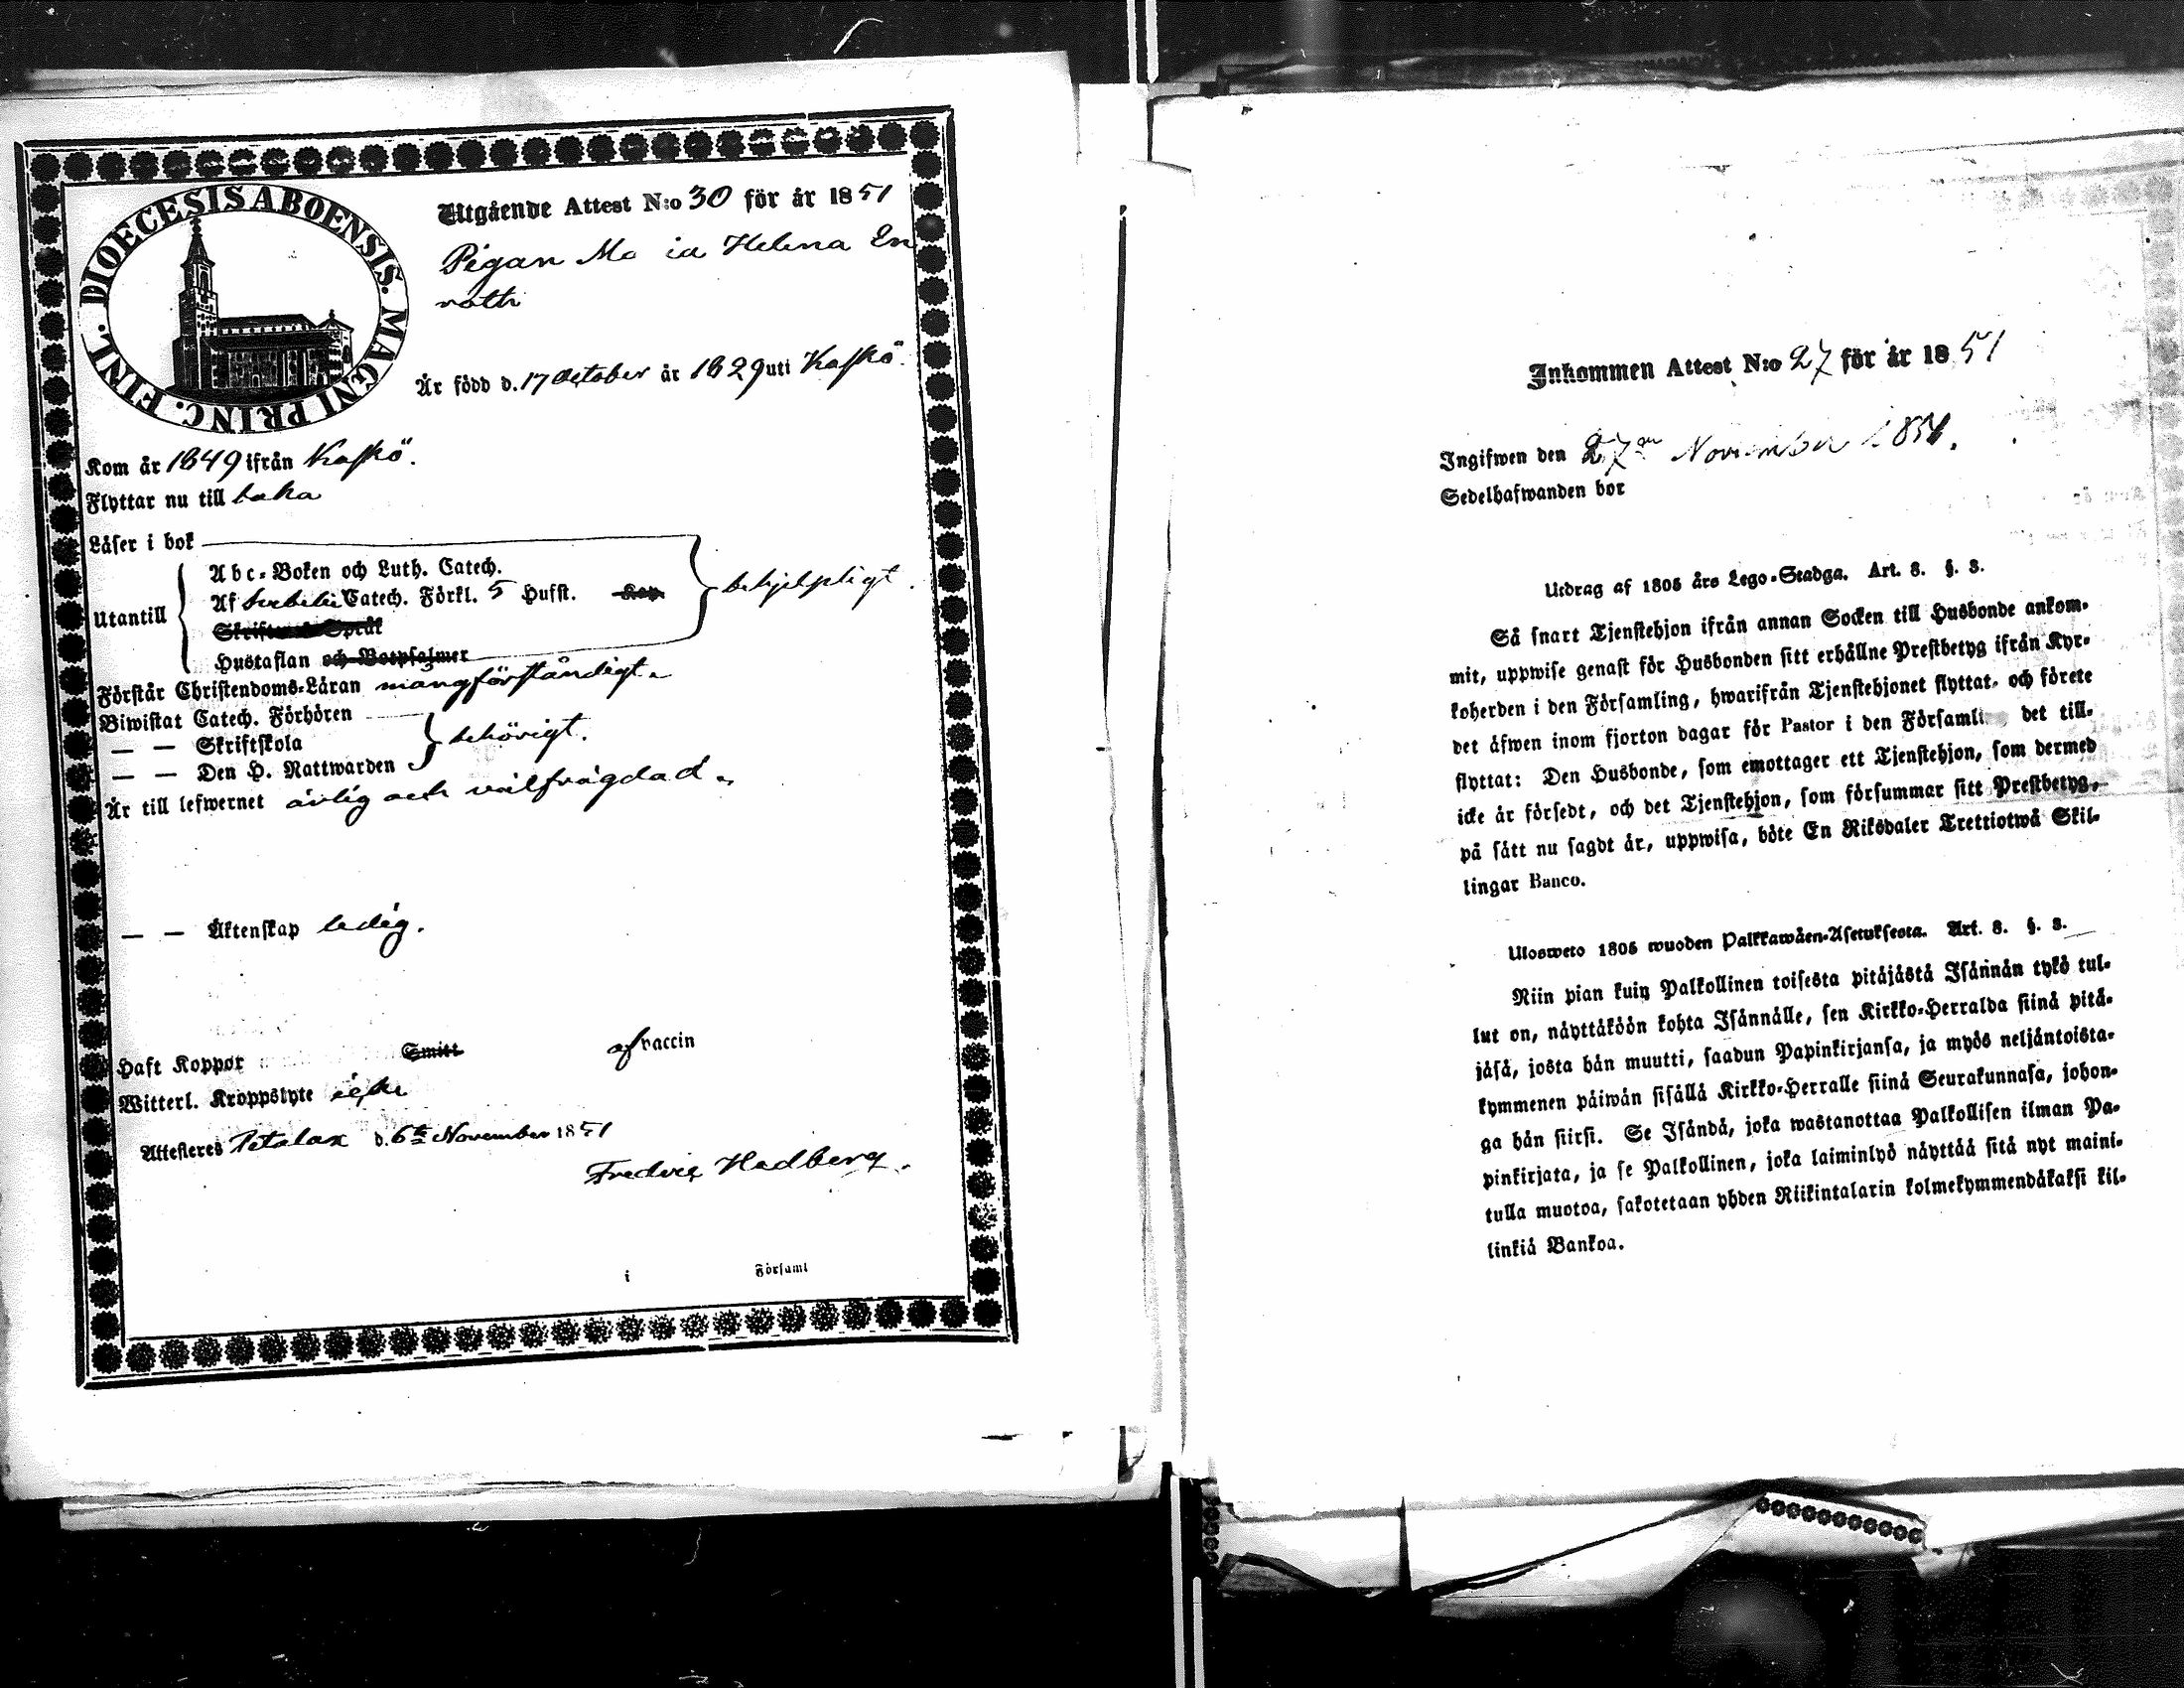 DIOECESIS ABOENSIS. MAGNI PRINC. FINL.
Utgående Attest N:o 30 för år 1851
Pigan Ma ia Helena En
roth
Är född d. 17 October år 1829 uti Kaskö.
Kom år 1849 ifrån Kaskö.
Flyttar nu till baka
Läser i bok
Utantill
Abc-Boken och Luth. Catech.
Af Svebelii Catech. Förkl. 5 Hufst. Kap.
Skriftens Språk
Hustaflan och Botpsalmer
behjelpligt.
Förstår Christendoms-Läran mångförståndigt.
Biwistat Catech. Förhören
— — Skriftskola
— — Den H. Nattwarden
behörigt.
Är till lefwernet ärlig och välfrägdad.
— — Äktenskap ledig.
Haft Koppor Smitt af vaccin
Witterl. Kroppslyte icke
Attesteres Petalax d. 6te November 1851
Fredric Hedberg.
i Församl
Inkommen Attest N:o 27 för år 1851
Ingifwen den 27de November 1851.
Sedelhafwanden bor
Utdrag af 1805 års Lego-Stadga. Art. 8. §. 3.
Så snart Tjenstehjon ifrån annan Socken till Husbonde ankom-
mit, uppwise genast för Husbonden sitt erhållne Prestbetyg ifrån Kyr-
koherden i den Församling, hwarifrån Tjenstehjonet flyttat, och förete
det äfwen inom fjorton dagar för Pastor i den Församli det till-
flyttat: Den Husbonde, som emottager ett Tjenstehjon, som dermed
icke är försedt, och det Tjenstehjon, som försummar sitt Prestbetyg,
på sätt nu sagdt är, uppwisa, böte En Riksdaler Trettiotwå Skil-
lingar Banco.
Ulosweto 1805 wuoden Palkkawäen-Asetuksesta. Art. 8. §. 3.
Niin pian kuin Palkollinen toisesta pitäjästä Isännän tykö tul-
lut on, näyttäköön kohta Isännälle, sen Kirkko-Herralda siinä pitä-
jäsä, josta hän muutti, saadun Papinkirjansa, ja myös neljäntoista-
kymmenen päiwän sisällä Kirkko-Herralle siinä Seurakunnasa, johon-
ga hän siirsi. Se Isändä, joka wastanottaa Palkollisen ilman Pa-
pinkirjata, ja se Palkollinen, joka laiminlyö näyttää sitä nyt maini-
tulla muotoa, sakotetaan yhden Riikintalarin kolmekymmendäkaksi kil-
linkiä Bankoa.